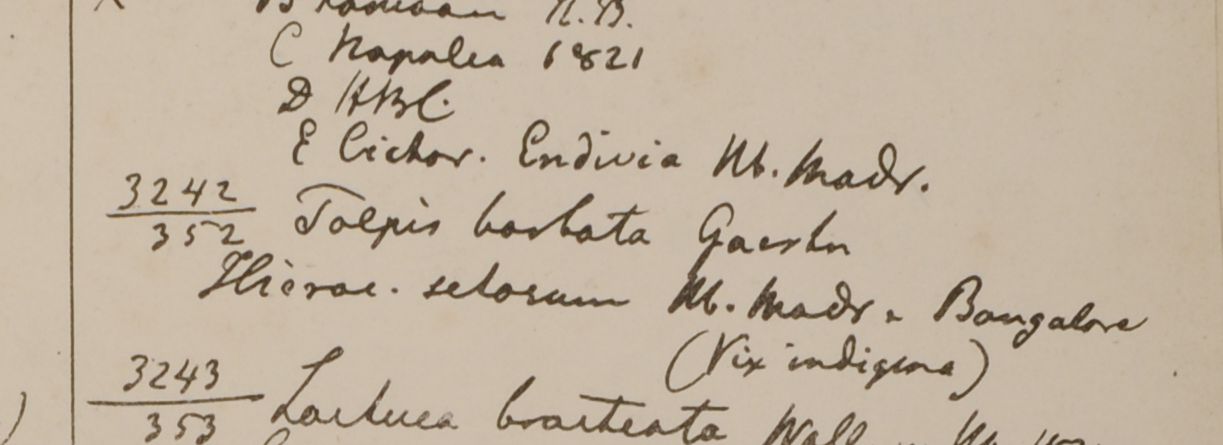 H.B.
C Napalia 1821
D HBC.
E Cichor. Endivia Hb. Madr.
3242
352 Tolpis barbata Gaertn
Hierac. setosum Hb. Madr. Bangalore
(Vix indigena)
3243
353 Lactuca bracteata Wall